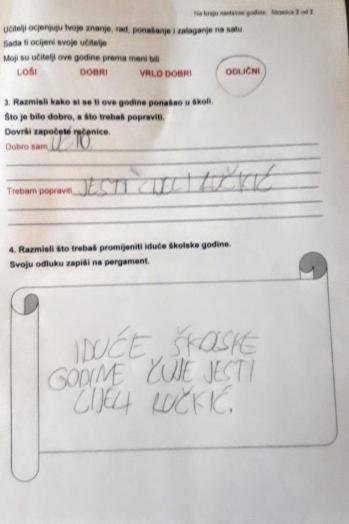 Na kraju nastavne godine. Stranica 2 od 2
Učitelji ocjenjuju tvoje znanje, rad, ponašanje i zalaganje na satu.
Sada ti ocijeni svoje učitelje
Moji su učitelji ove godine prema meni bili
LOŠI DOBRI VRLO DOBRI ODLIČNI
3. Razmisli kako si se ti ove godine ponašao u školi.
Što je bilo dobro, a što trebaš popraviti.
Dovrši započete rečenice.
Dobro sam UČIO
Trebam popraviti JESTI CIJELI RUČKIĆ
4. Razmisli što trebaš promijeniti iduće školske godine.
Svoju odluku zapiši na pergament.
IDUĆE ŠKOLSKE
GODINE ĆU JESTI
CIJELI RUČKIĆ.